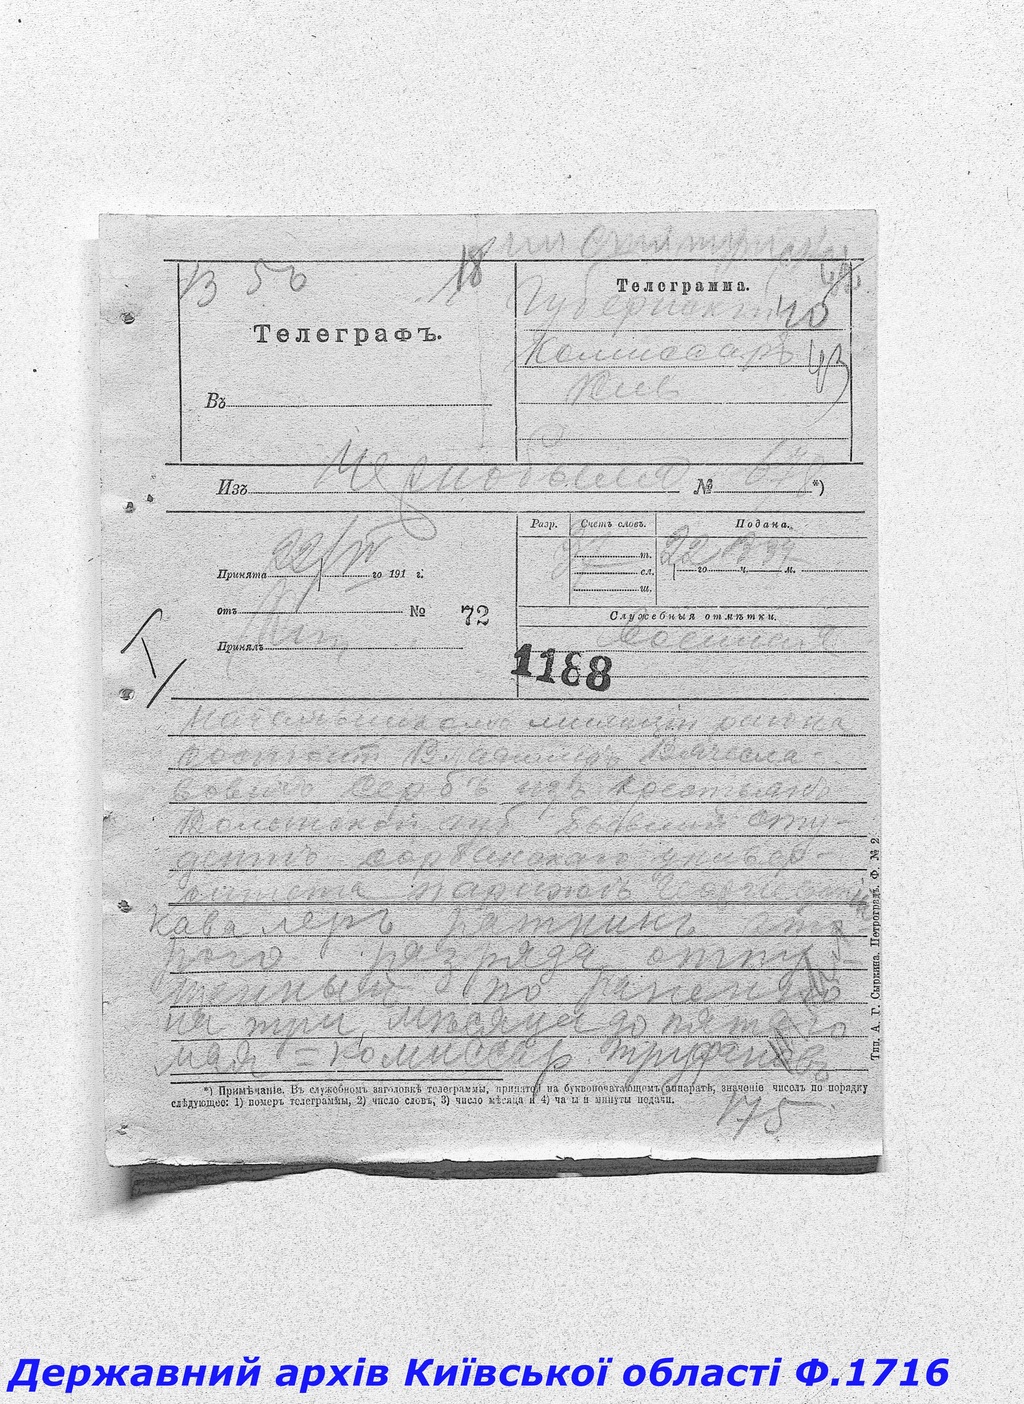 В 56
18
Телеграмма.
Губернский
40
Телеграфъ.
Комиссаръ
43
Въ
Киев
Изъ Чернобыля № 679 *)
Разр. Счетъ словъ. Подана.
т. 22
Принята 22/IV го 191 г.
сл. го ч. м.
ш.
отъ № 72
Служебныя отмѣтки.
Принялъ
1188
Начальником милиции района
состоит Владимир Вячесла-
вович Сербъ изъ крестьянъ
Волынской губ бывший сту-
дентъ сорбонскаго универ-
ситета Париж Георгиевский
кавалеръ ратникъ вто-
рого разряда отпу-
щенный по ранению
на три мѣсяца до пятаго
мая = комиссар Труфановъ
*) Примѣчаніе. Въ служебномъ заголовкѣ телеграммы, принятой на буквопечатающемъ аппаратѣ, значеніе чиселъ по порядку
слѣдующее: 1) номеръ телеграммы, 2) число словъ, 3) число мѣсяца и 4) часы и минуты подачи.
175
Тип. А. Г. Сыркина, Петроградъ. Ф. № 2
Державний архів Київської області Ф.1716